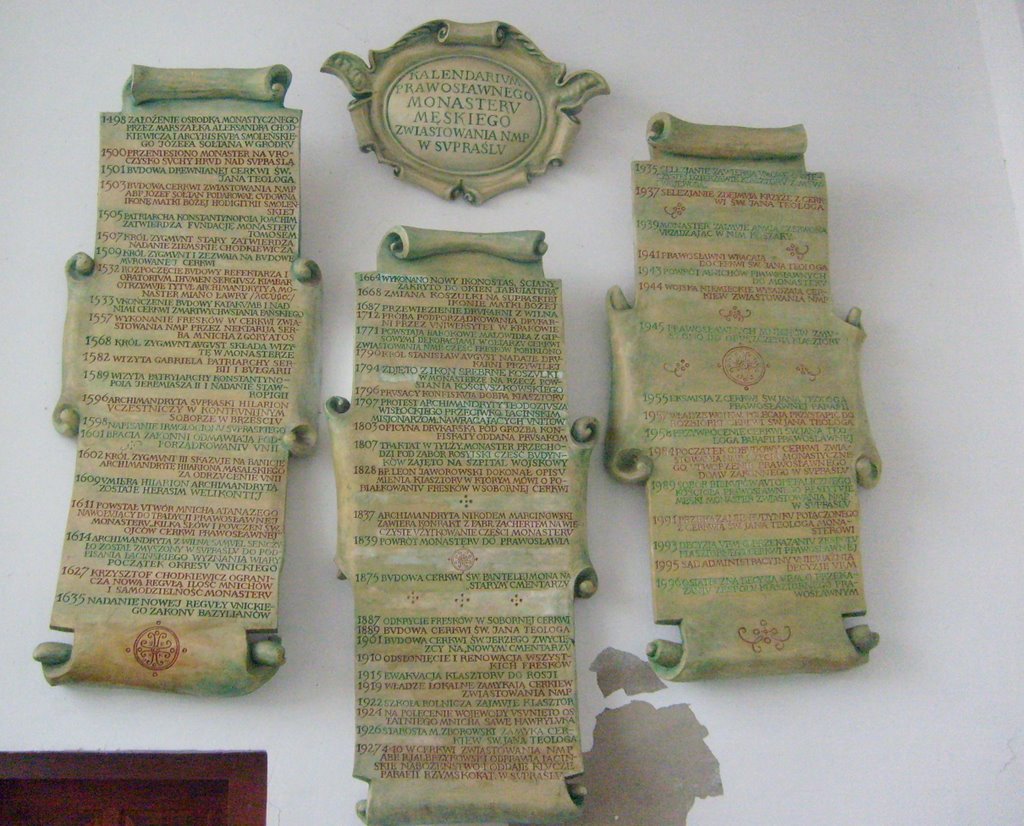 KALENDARIVM
PRAWOSŁAWNEGO
MONASTERV
MĘSKIEGO
ZWIASTOWANIA NMP
W SVPRAŚLV
1498 ZAŁOŻENIE OŚRODKA MONASTYCZNEGO
PRZEZ MARSZAŁKA ALEKSANDRA CHOD
KIEWICZA I ARCYBISKVPA SMOLEŃSKIE
GO JÓZEFA SOŁTANA W GRÓDKV
1500 PRZENIESIONO MONASTER NA VRO
CZYSKO SVCHY HRVD NAD SVPRAŚLĄ
1501 BVDOWA DREWNIANEJ CERKWI ŚW.
JANA TEOLOGA
1503 BVDOWA CERKWI ZWIASTOWANIA NMP
ABP JÓZEF SOŁTAN PODAROWAŁ CVDOWNĄ
IKONĘ MATKI BOŻEJ HODIGITRII SMOLEŃ
SKIEJ
1505 PATRIARCHA KONSTANTYNOPOLA JOACHIM
ZATWIERDZA FVNDACJĘ MONASTERV
TOMOSEM
1507 KRÓL ZYGMVNT STARY ZATWIERDZA
NADANIE ZIEMSKIE CHODKIEWICZA
1509 KRÓL ZYGMVNT I ZEZWALA NA BVDOWĘ
MVROWANEJ CERKWI
1532 ROZPOCZĘCIE BVDOWY REFEKTARZA I
ORATORIVM. IHVMEN SERGIVSZ KIMBAR
OTRZYMVJE TYTVŁ ARCHIMANDRYTY A MONA
STER MIANO ŁAWRY
1533 VKOŃCZENIE BVDOWY KATAKVMB I NAD
NIMI CERKWI ZMARTWYCHWSTANIA PAŃSKIEGO
1557 WYKONANIE FRESKÓW W CERKWI ZWIA
STOWANIA NMP PRZEZ NEKTARIJA SER
BA MNICHA Z
1568 KRÓL ZYGMVNT AVGVST SKŁADA WIZY
TĘ W MONASTERZE
1582 WIZYTA GABRIELA PATRIARCHY SER
BII I BVŁGARII
1589 WIZYTA PATRYIARCHY KONSTANTYNO
POLA JEREMIASZA II NADANIE STAW
ROPIGII
1596 ARCHIMANDRYTA SVPRASKI HILARION
VCZESTNICZY W KONTRVNIJNYM
SOBORZE W BRZEŚCIV
1598 NAPISANIE IRMOŁOGIONV SVPRASKIEGO
1601 BRACIA ZAKONNI ODMAWIAJĄ POD
PORZĄDKOWANIV VNII
1602 KRÓL ZYGMVNT III SKAZVJE NA BANICJĘ
ARCHIMANDRITĘ HILARIONA MASALSKIEGO
ODRZVCENIE VNII
1609 VMIERA HILARION ARCHIMANDRYTĄ
ZOSTAJE HERASIM WELIKONTIJ
1611 POWSTAŁ VTWÓR MNICHA ATANAZEGO
NAWOŁVJĄCY DO TRADYCJI PRAWOSŁAWNEJ
MONASTERV KILKA SŁÓW I POVCZEŃ ŚW.
OJCÓW CERKWI PRAWOSŁAWNEJ
1614 ARCHIMANDRYTA Z WILNA SAMVEL SIENCZY
ŁO ZOSTAŁ ZMVSZONY W SVPRAŚLV DO POD
PISANIA ŁACIŃSKIEGO WYZNANIA WIARY
POCZĄTEK OKRESV VNICKIEGO
1627 KRZYSZTOF CHODKIEWICZ OGRANI
CZA NOWĄ REGVŁĄ ILOŚĆ MNICHÓW
I SAMODZIELNOŚĆ MONASTERV
1635 NADANIE NOWEJ REGVŁY VNICKIE
GO ZAKONV BAZYLIANÓW
1664 WYKONANO NOWY IKONOSTAS, ŚCIANY
ZAKRYTO DO OKIEN ZABVDOWĄ
1668 ZMIANA KOSZVLKI NA SVPRASKIEJ
IKONIE MATKI BOŻEJ
1687 PRZEWIEZIENIE DRVKARNI Z WILNA
1712 PRÓBA PODPORZĄDKOWANIA DRVKAR
NI PRZEZ VNIWERSYTET W KRAKOWIE
1771 POWSTAJĄ BAROKOWE MALOWIDŁA Z GIP
SOWYMI DEKORACJAMI W OŁTARZV CERKWI
ZWIASTOWANIA NMP CZĘŚĆ FRESKÓW POBIELONO
1790 KRÓL STANISŁAW AVGVST NADAJE DRV
KARNI PRZYWILEJ
1794 ZDJĘTO Z IKON SREBRNE KOSZVLKI
W MONASTERZE NA RZECZ POW
STANIA KOŚCIVSZKOWSKIEGO
1796 PRVSACY KONFISKVJĄ DOBRA KLASZTORV
1797 PROTEST ARCHIMANDRYTY TEODOZJVSZA
WISŁOCKIEGO PRZECIWKO ŁACIŃSKIM
MISJONARZOM NAWRACAJĄCYCH VNITÓW
1803 OFICYNA DRVKARSKA POD GROŹBĄ KON
FISKATY ODDANA PRVSAKOM
1807 TRAKTAT W TYLŻY. MONASTER PRZECHO
DZI POD ZABÓR ROSYJSKI CZĘŚĆ BVDYN
KÓW ZAJĘTO NA SZPITAL WOJSKOWY
1828 BP. LEON JAWOROWSKI DOKONAŁ OPISV
MIENIA KLASZTORV W KTÓRYM MÓWI O PO
BIAŁKOWANIV FRESKÓW W SOBORNEJ CERKWI
1837 ARCHIMANDRYTA NIKODEM MARCINOWSKI
ZAWIERA KONTRAKT Z FABR. ZACHERTEM NA WIE
CZYSTE VŻYTKOWANIE CZĘŚCI MONASTERV
1839 POWRÓT MONASTERV DO PRAWOSŁAWIA
1875 BVDOWA CERKWI ŚW. PANTELEJMONA NA
STARYM CMENTARZV
1887 ODKRYCIE FRESKÓW W SOBORNEJ CERKWI
1889 BVDOWA CERKWI ŚW. JANA TEOLOGA
1901 BVDOWA CERKWI ŚW. JERZEGO ZWYCIĘ
ZCY NA NOWYM CMENTARZV
1910 ODSŁONIĘCIE I RENOWACJA WSZYST
KICH FRESKÓW
1915 EWAKVACJA KLASZTORV DO ROSJI
1919 WŁADZE LOKALNE ZAMYKAJĄ CERKIEW
ZWIASTOWANIA NMP
1922 SZKOŁA ROLNICZA ZAJMVJE KLASZTOR
1924 NA POLECENIE WOJEWODY VSVNIĘTO OS
TATNIEGO MNICHA SAWĘ HAWRYLVKA
1926 STAROSTA M. ZBOROWSKI ZAMYKA CER
KIEW ŚW. JANA TEOLOGA
1927 4.10 W CERKWI ZWIASTOWANIA NMP
ABP R. JAŁBRZYKOWSKI ODPRAWIA ŁACIŃ
SKIE NABOŻEŃSTWO I ODDAJE KLVCZE
PARAFII RZYMSKOKAT. W SVPRAŚLV
1935 SALEZJANIE
1937 SELEZJANIE ZDEJMVJĄ KRZYŻE Z CERK
WI ŚW. JANA TEOLOGA
1939 MONASTER ZAJMVJE ARMIA CZERWONA
VRZĄDZAJĄC W NIM
1941 PRAWOSŁAWNI WRACAJĄ
DO CERKWI ŚW. JANA TEOLOGA
1943 POWRÓT MNICHÓW PRAWOSŁAWNYCH
DO MONASTERV
1944 WOJSKA NIEMIECKIE WYSADZAJĄ CER
KIEW ZWIASTOWANIA NMP
1945 PRAWOSŁAWNYCH MNICHÓW ZMV
SZONO DO OPVSZCZENIA KLASZTORV
1955 EKSMISJA Z CERKWI ŚW. JANA TEOLOGA
PRAWOSŁAWNEJ PARAFII
1957 WŁADZE WOJEW.
CERKWI ŚW. JANA TEOLOGA
1958 PRZYWRÓCENIE CERKWI
LOGA PARAFII PRAWOSŁAWNEJ
1984 POCZĄTEK ODBVDOWY CERKWI ZWIA
PRAWOSŁAWNEGO
ZAKONNEGO W SVPRAŚLV
1989 SOBÓR BISKVPÓW AVTOKEFALICZNEGO
KOŚCIOŁA PRAWOSŁAWNEGO
MĘSKI MONASTER ZWIASTOWANIA NMP
W SVPRAŚLV
1991
CERKWIĄ ŚW. JANA TEOLOGA MONA
STEROWI
1993 DECYZJA VRM O PRZEKAZANIV
PRAWOSŁAWNEJ
1995 SĄD ADMINISTRACYJNY
DECYZJĘ VRM
1996 OSTATECZNA DECYZJA VRM O PRZEKA
ZANIV ZESPOŁV KLASZTORNEGO PRA
WOSŁAWNYM